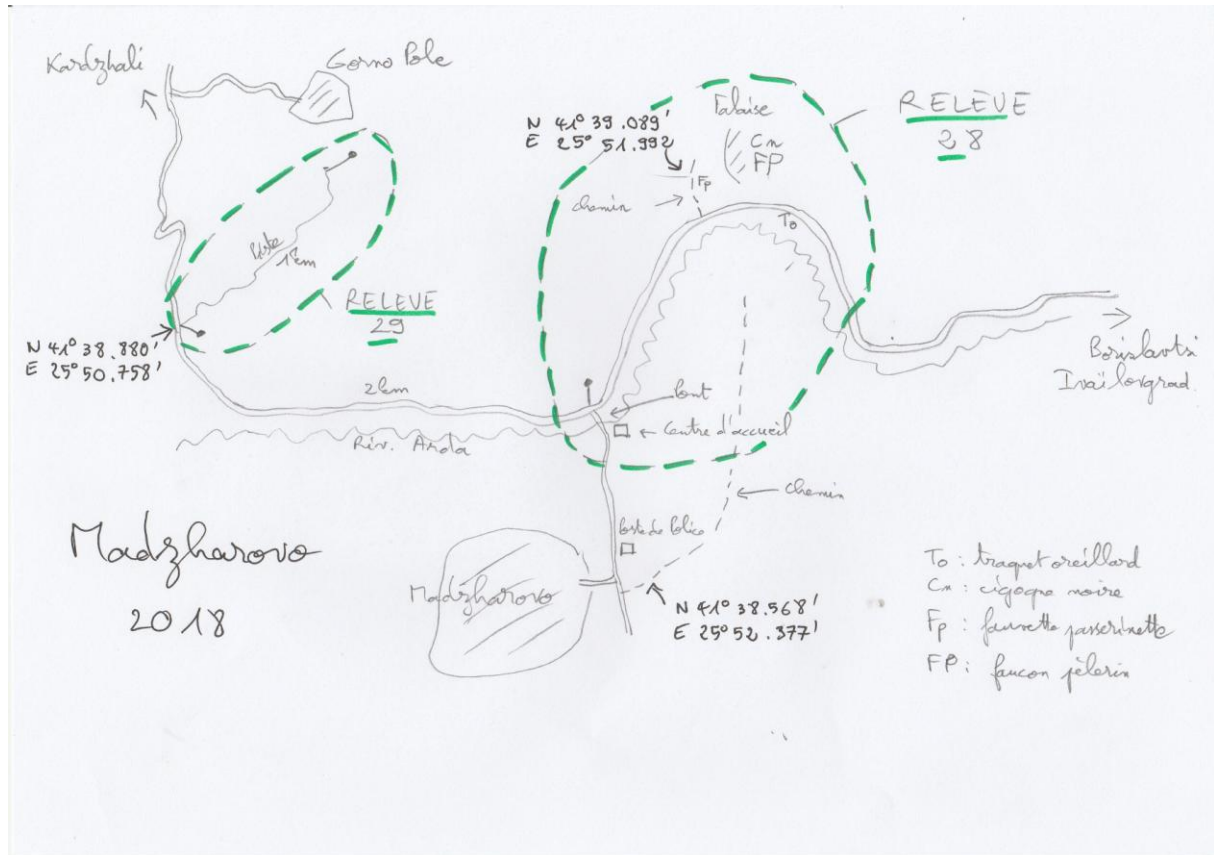 Kardzhali
Gorno Pole
N 41° 39.089'
E 25° 51.992
Falaise
Cn
FP
RELEVE
28
Fp
chemin
To
Piste
1km
RELEVE
29
N 41° 38.880'
E 25° 50.758'
2km
Riv. Arda
Pont
Centre d'accueil
Borislavtsi
Ivaïlovgrad
chemin
Poste de Police
Madzharovo
2018
Madzharovo
N 41° 38.568'
E 25° 52.377'
To : traquet oreillard
Cn : cigogne noire
Fp : fauvette passerinette
FP : faucon pèlerin